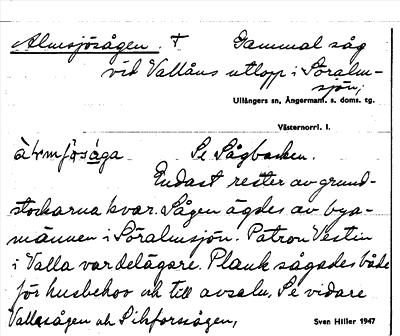 Almsjösågen. † Gammal såg
vid Vallåns utlopp i Söralm-
sjön,
Ullångers sn, Ångermanl. s. doms. tg.
Västernorrl. l.
Se Sågbacken.
Endast rester av grund-
stockarna kvar. Sågen ägdes av bya-
männen i Söralmsjön. Patron Vestin
i Valla var delägare. Plank sågades både
för husbehov och till avsalu. Se vidare
Vallasågen och Sikforssågen,
Sven Hiller 1947